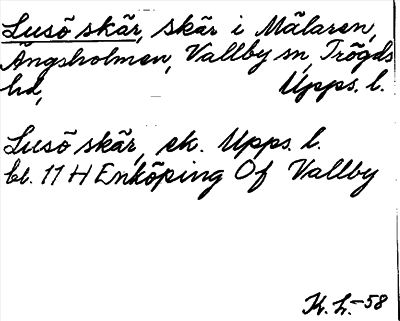 Lusö skär, skär i Mälaren,
Ängsholmen, Vallby sn, Trögds
hd, Upps. l.
Lusö skär, ek. Upps. l.
bl. 11 H Enköping Of Vallby
K. L. -58